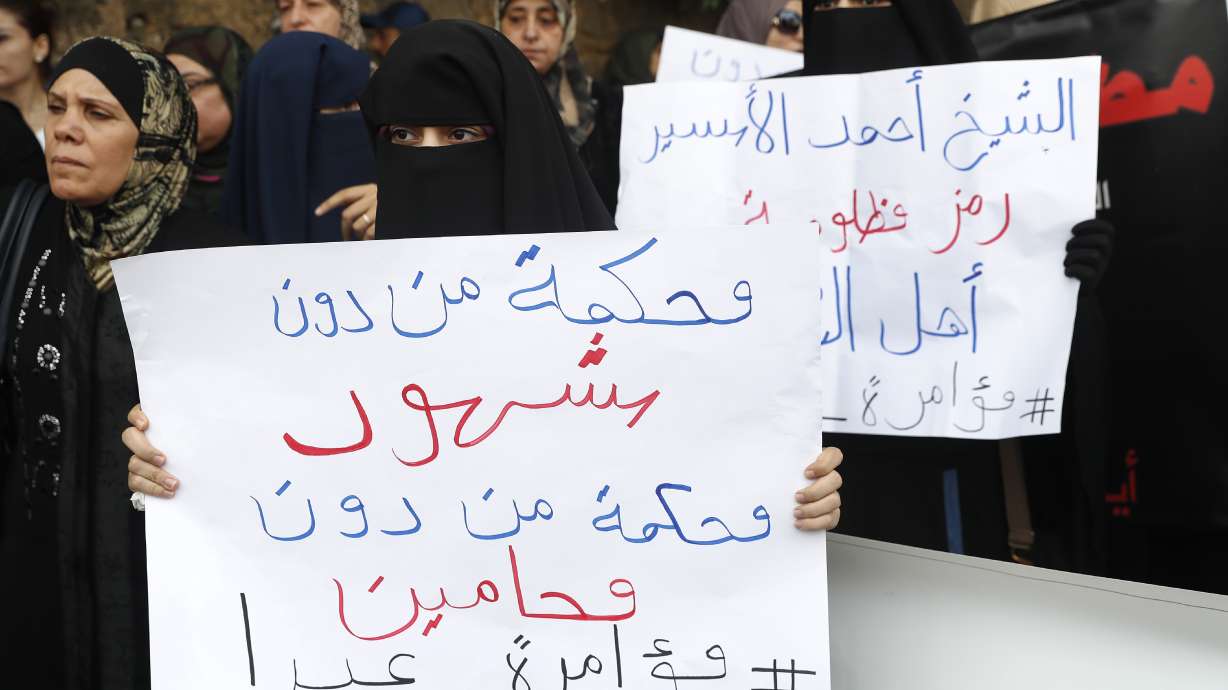 محكمة من دون
شهود
محكمة من دون
محامين
#مؤامرة عبرا
الشيخ أحمد الأسير
رمز مظلومية
أهل
#مؤامرة
دون